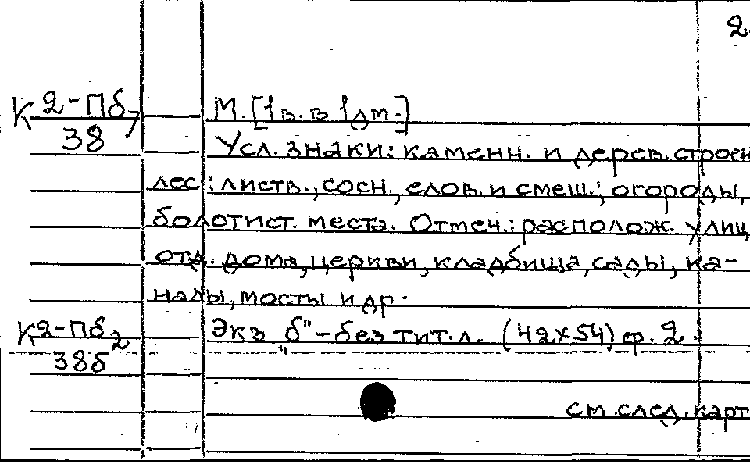 2.
К 2-Пб 7
38
М. [1 в. в 1 дм.]
Усл. знаки: каменн. и дерев. строен
лес: листв., сосн., елов. и смеш.; огороды,
болотист. места. Отмеч.: располож. улиц
отд. дома, церкви, кладбища, сады, ка-
налы, мосты и др.
К 2-Пб 2
38б
Экз „б" - без тит. л. (42х54) ср. 2
см. след. карт